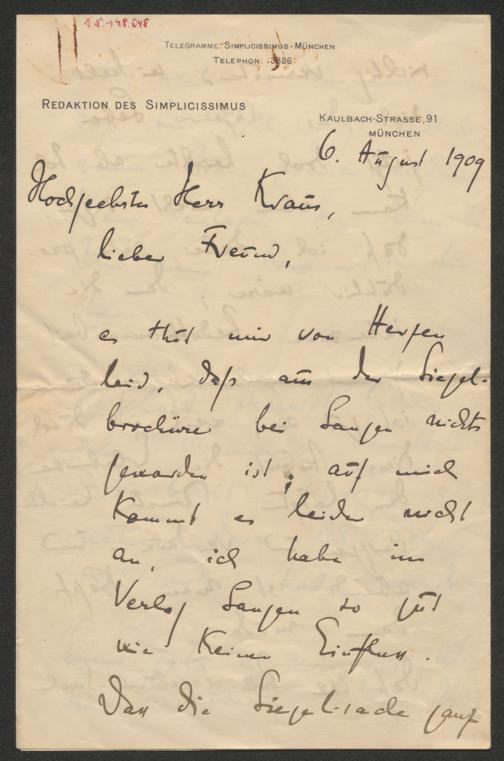 I.N. 148.048
TELEGRAMME: SIMPLICISSIMUS-MÜNCHEN
TELEPHON: 3826
REDAKTION DES SIMPLICISSIMUS
KAULBACH-STRASSE, 91
MÜNCHEN
6. August 1909
Hochgeehrter Herr Kraus,
lieber Freund,
es thut mir von Herzen
leid, daß aus der Siegel-
brochüre bei Langen nichts
geworden ist; auf mich
kommt es leider nicht
an, ich habe im
Verlag Langen so gut
wie keinen Einfluss.
Dass die Siegelsache ganz